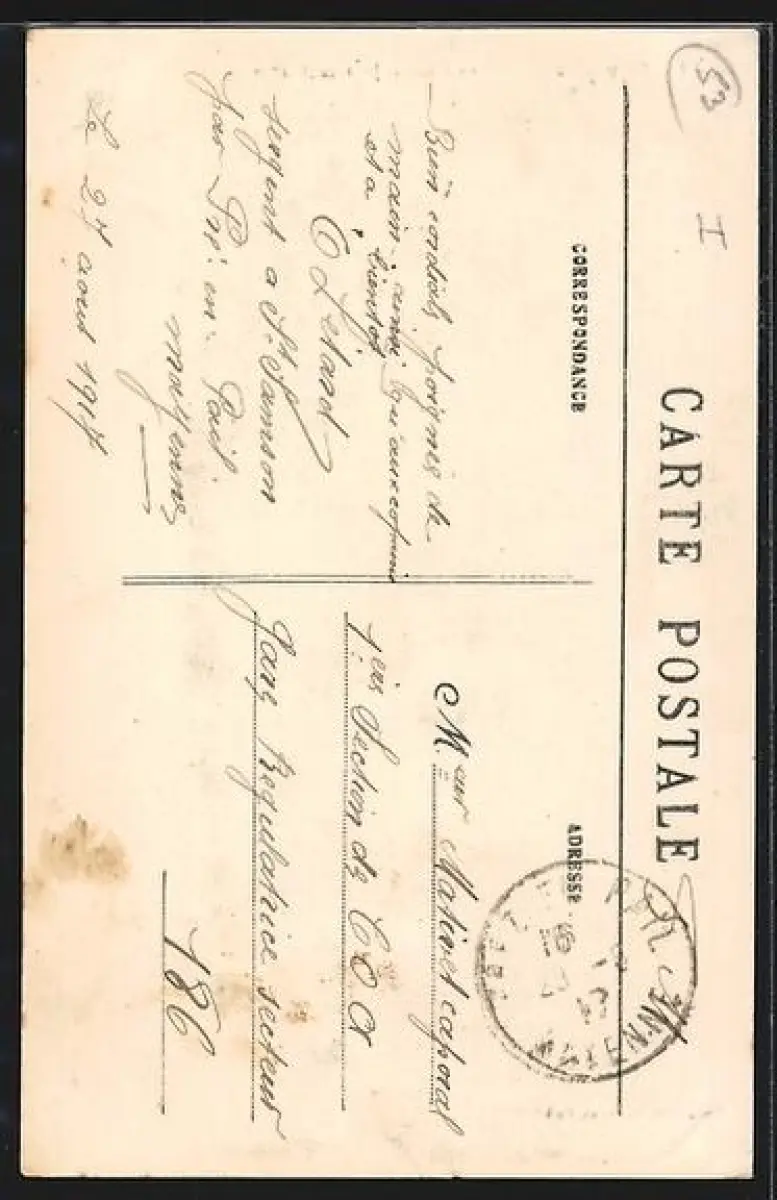 53
I
CARTE POSTALE
CORRESPONDANCE
ADRESSE
Bun cordiale poignis de
main ainsi qu'aux copains
et a bientot
E Letard
sergent a St Samson
par Pré. en. Pail
mayenne
Le 27 aout 1917
Mr Matinet caporal
Section de C O A
Gare Regulatrice secteur
186
MAYENNE